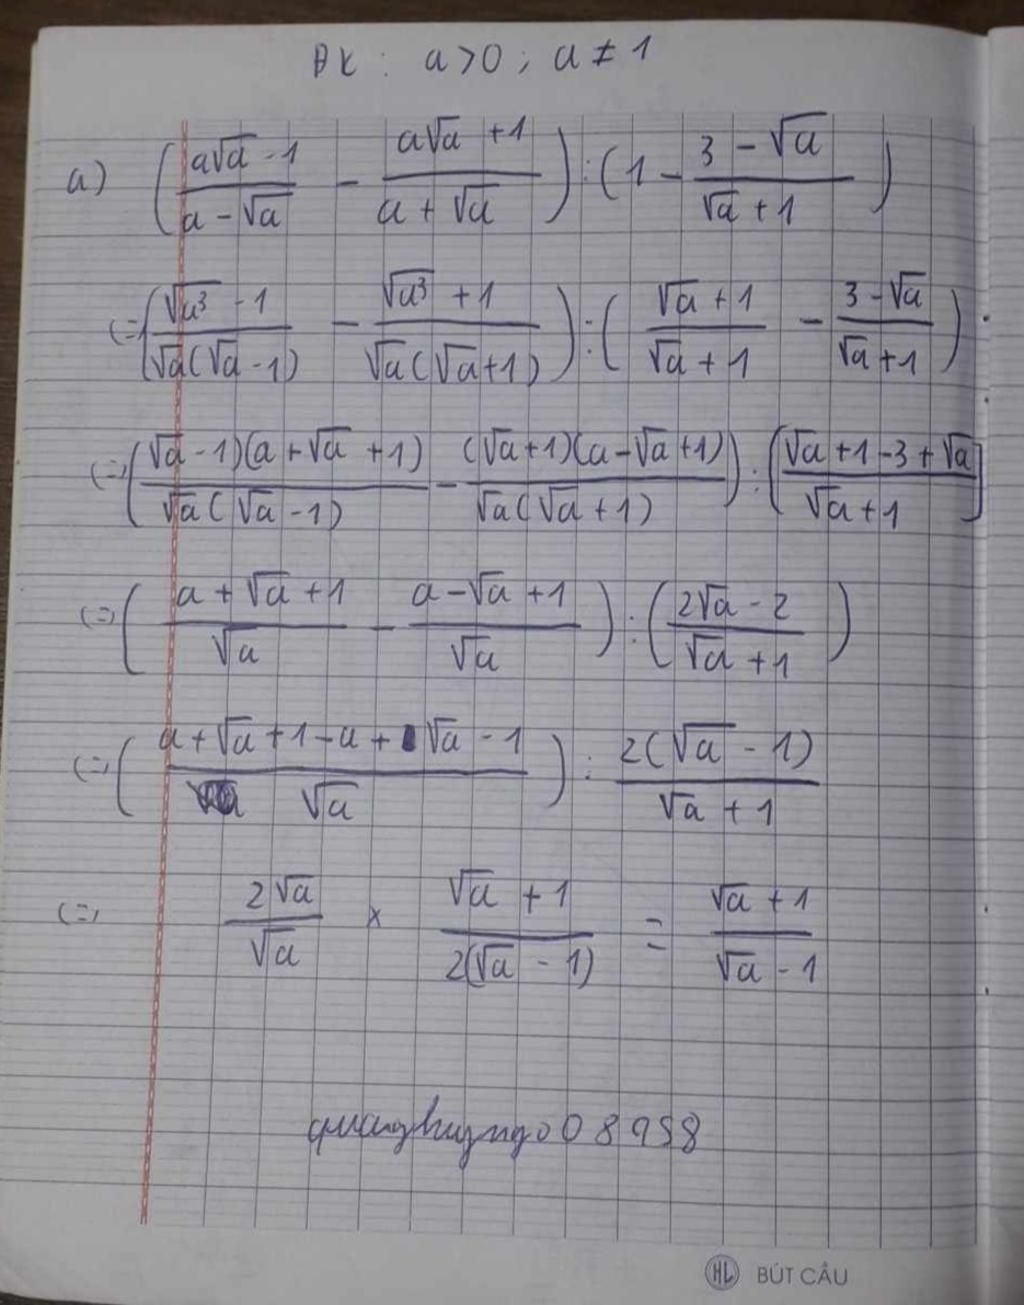 ĐK : a > 0 ; a ≠ 1
a) ( (a√a - 1)/(a - √a) - (a√a + 1)/(a + √a) ) : ( 1 - (3 - √a)/(√a + 1) )
(=) ( (√a³ - 1)/(√a(√a - 1)) - (√a³ + 1)/(√a(√a + 1)) ) : ( (√a + 1)/(√a + 1) - (3 - √a)/(√a + 1) )
(=) ( (√a - 1)(a + √a + 1)/(√a(√a - 1)) - (√a + 1)(a - √a + 1)/(√a(√a + 1)) ) : ( (√a + 1 - 3 + √a)/(√a + 1) ]
(=) ( (a + √a + 1)/√a - (a - √a + 1)/√a ) : ( (2√a - 2)/(√a + 1) )
(=) ( (a + √a + 1 - a + √a - 1)/√a ) : 2(√a - 1)/(√a + 1)
(=) 2√a/√a × (√a + 1)/(2(√a - 1)) = (√a + 1)/(√a - 1)
quanghuyngo08958
HL BÚT CẦU